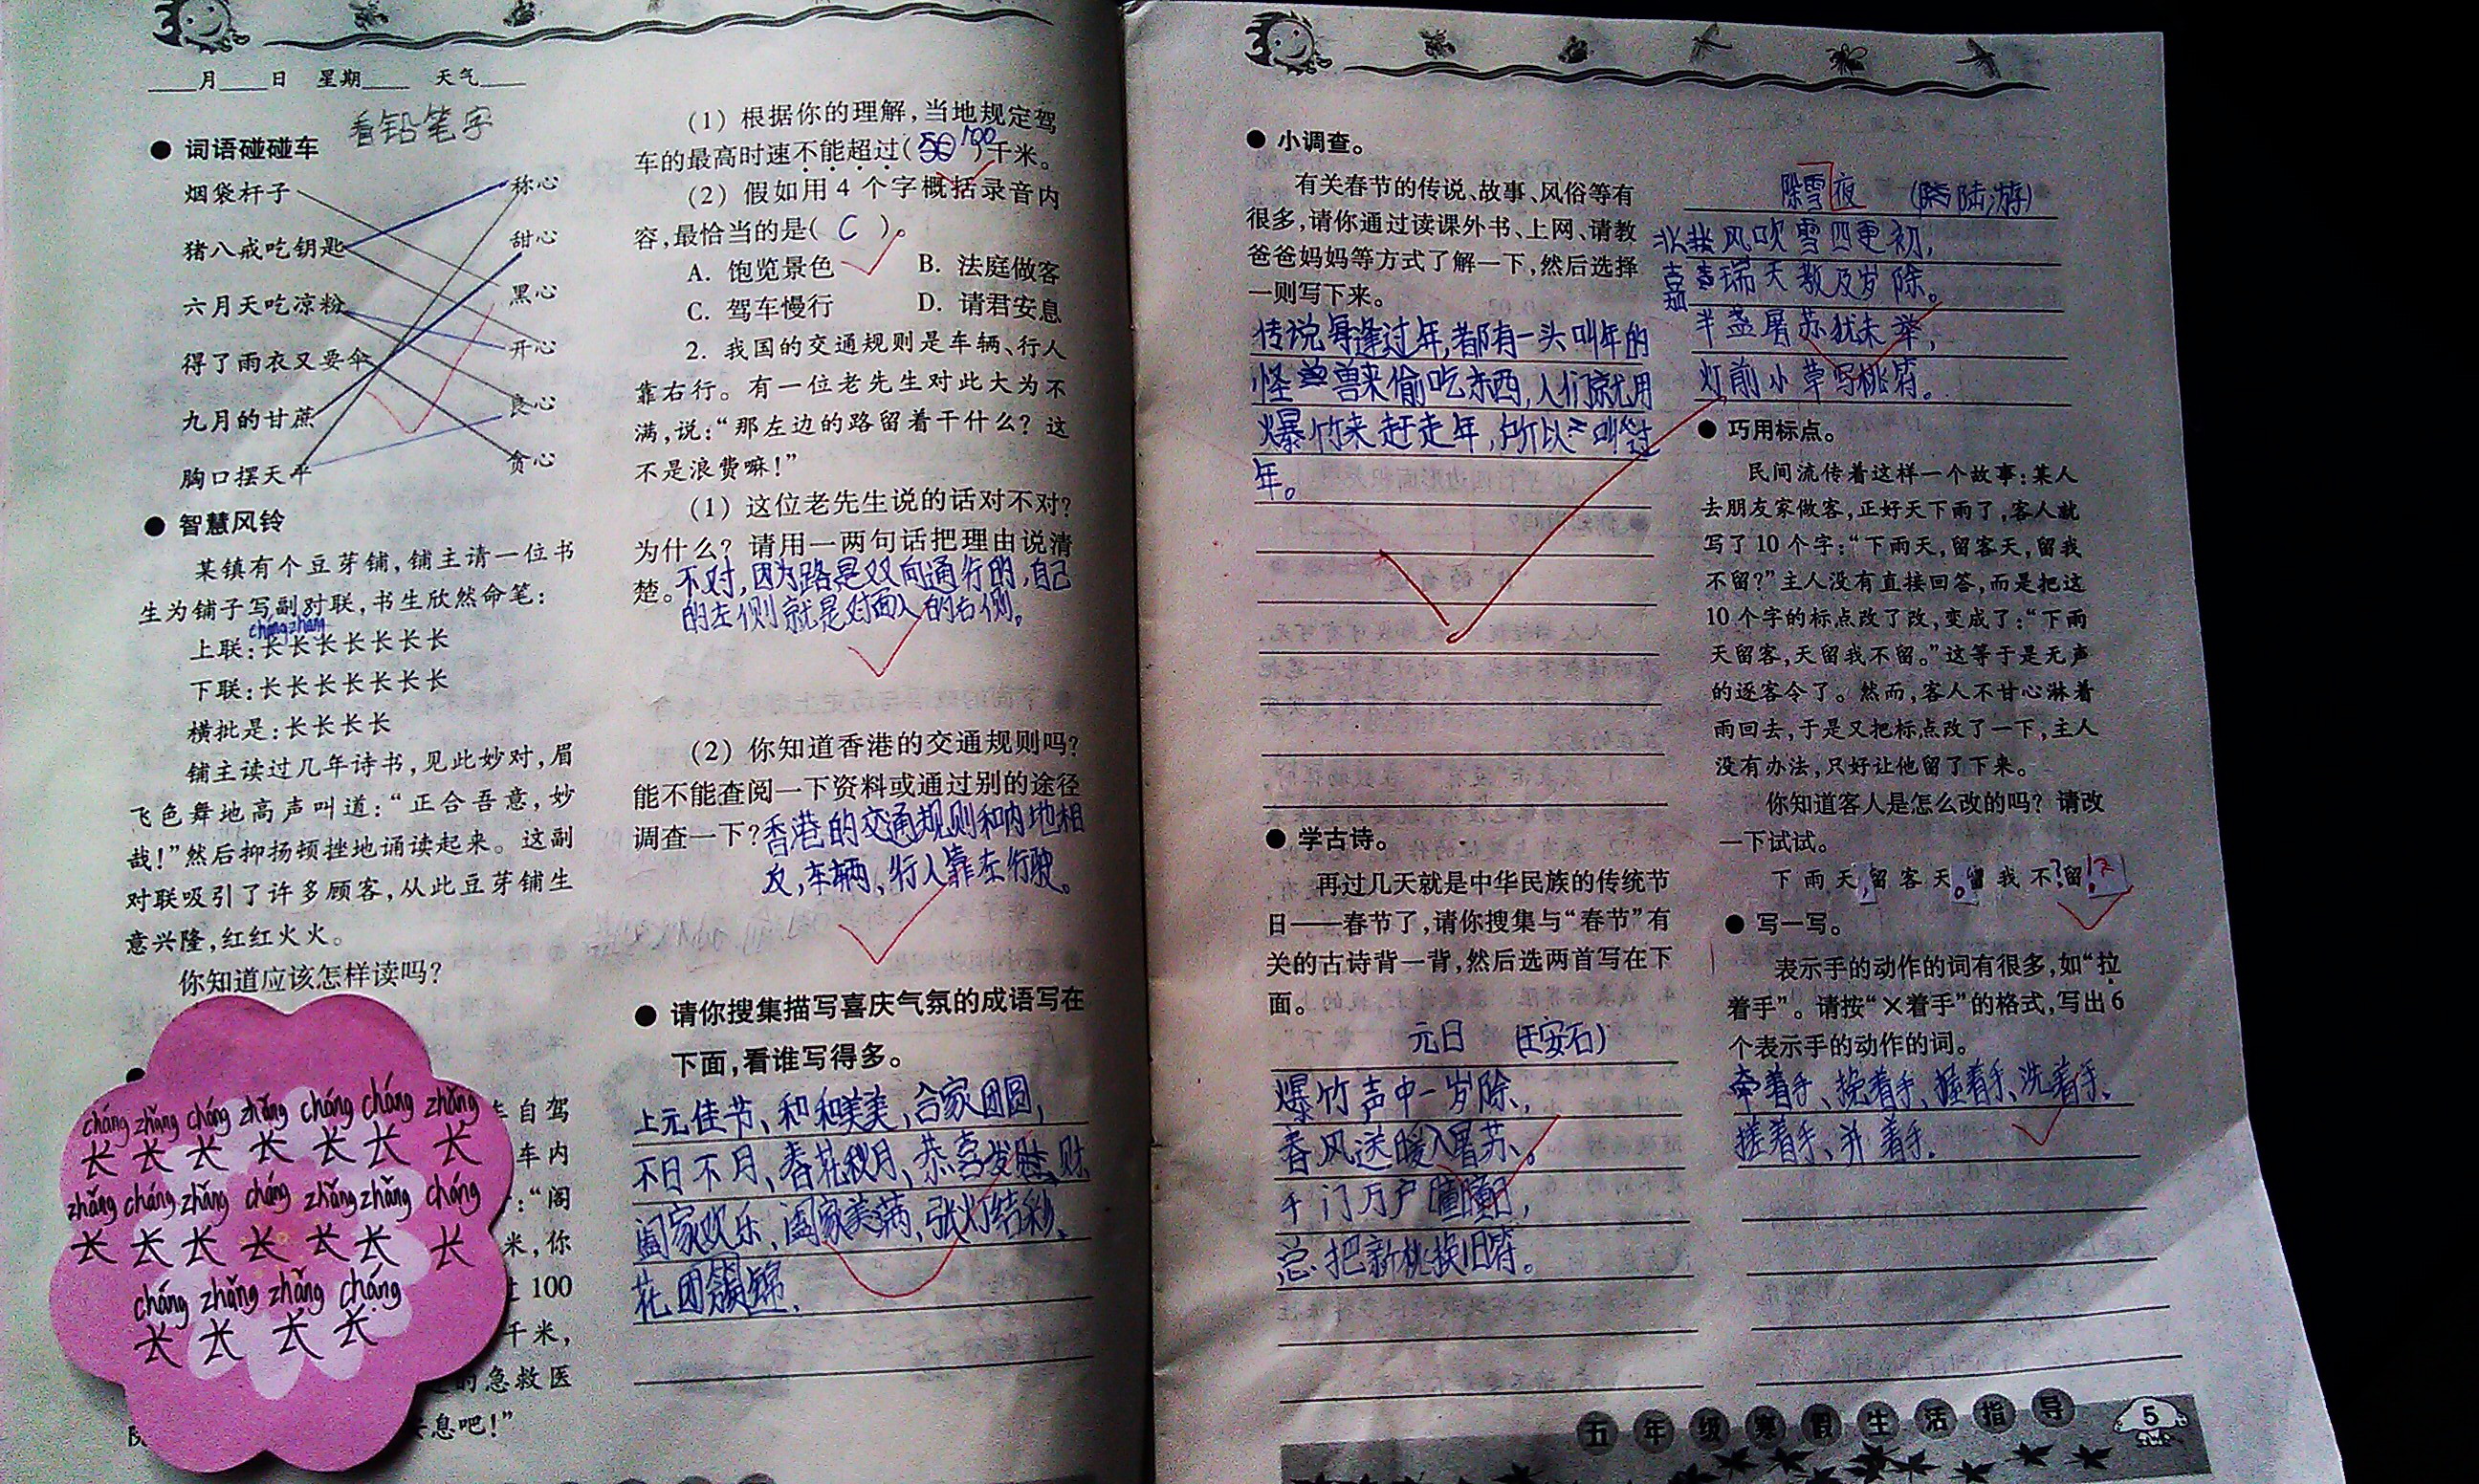 ____月____日 星期____ 天气____
看铅笔字
● 词语碰碰车
烟袋杆子
称心
猪八戒吃钥匙
甜心
六月天吃凉粉
黑心
得了雨衣又要伞
开心
九月的甘蔗
良心
胸口摆天平
贪心
● 智慧风铃
某镇有个豆芽铺,铺主请一位书
生为铺子写副对联,书生欣然命笔:
cháng zhǎng
上联:长长长长长长长
下联:长长长长长长长
横批是:长长长长
铺主读过几年诗书,见此妙对,眉
飞色舞地高声叫道:“正合吾意,妙
哉!”然后抑扬顿挫地诵读起来。这副
对联吸引了许多顾客,从此豆芽铺生
意兴隆,红红火火。
你知道应该怎样读吗?
cháng zhǎng cháng zhǎng cháng cháng zhǎng
长 长 长 长 长 长 长
zhǎng cháng zhǎng cháng zhǎng zhǎng cháng
长 长 长 长 长 长 长
cháng zhǎng zhǎng cháng
长 长 长 长
车自驾
车内
:“阁
米,你
100
千米,
的急救医
息吧!”
(1) 根据你的理解,当地规定驾
车的最高时速不能超过( 100 )千米。
(2) 假如用 4 个字概括录音内
容,最恰当的是( C )。
A. 饱览景色 B. 法庭做客
C. 驾车慢行 D. 请君安息
2. 我国的交通规则是车辆、行人
靠右行。有一位老先生对此大为不
满,说:“那左边的路留着干什么?这
不是浪费嘛!”
(1) 这位老先生说的话对不对?
为什么?请用一两句话把理由说清
楚。不对,因为路是双向通行的,自己
的左侧就是对面人的右侧。
(2) 你知道香港的交通规则吗?
能不能查阅一下资料或通过别的途径
调查一下?香港的交通规则和内地相
反,车辆、行人靠左行驶。
● 请你搜集描写喜庆气氛的成语写在
下面,看谁写得多。
上元佳节、和和美美、合家团圆、
不日不月、春花秋月、恭喜发财、
阖家欢乐、阖家美满、张灯结彩、
花团锦
● 小调查。
有关春节的传说、故事、风俗等有
很多,请你通过读课外书、上网、请教
爸爸妈妈等方式了解一下,然后选择
一则写下来。
传说每逢过年,都有一头叫年的
怪兽来偷吃东西,人们就用
爆竹来赶走年,所以叫过
年。
● 学古诗。
再过几天就是中华民族的传统节
日——春节了,请你搜集与“春节”有
关的古诗背一背,然后选两首写在下
面。
元日 (王安石)
爆竹声中一岁除,
春风送暖入屠苏。
千门万户曈曈日,
总把新桃换旧符。
除雪夜 (陆游)
北风吹雪四更初,
嘉瑞天教及岁除。
半盏屠苏犹未举,
灯前小草写桃符。
● 巧用标点。
民间流传着这样一个故事:某人
去朋友家做客,正好天下雨了,客人就
写了 10 个字:“下雨天,留客天,留我
不留?”主人没有直接回答,而是把这
10 个字的标点改了改,变成了:“下雨
天留客,天留我不留。”这等于是无声
的逐客令了。然而,客人不甘心淋着
雨回去,于是又把标点改了一下,主人
没有办法,只好让他留了下来。
你知道客人是怎么改的吗?请改
一下试试。
下雨天,留客天。留我不?留!
● 写一写。
表示手的动作的词有很多,如“拉
着手”。请按“×着手”的格式,写出 6
个表示手的动作的词。
牵着手、挽着手、握着手、洗着手、
搓着手、并着手.
五年级寒假生活指导
5